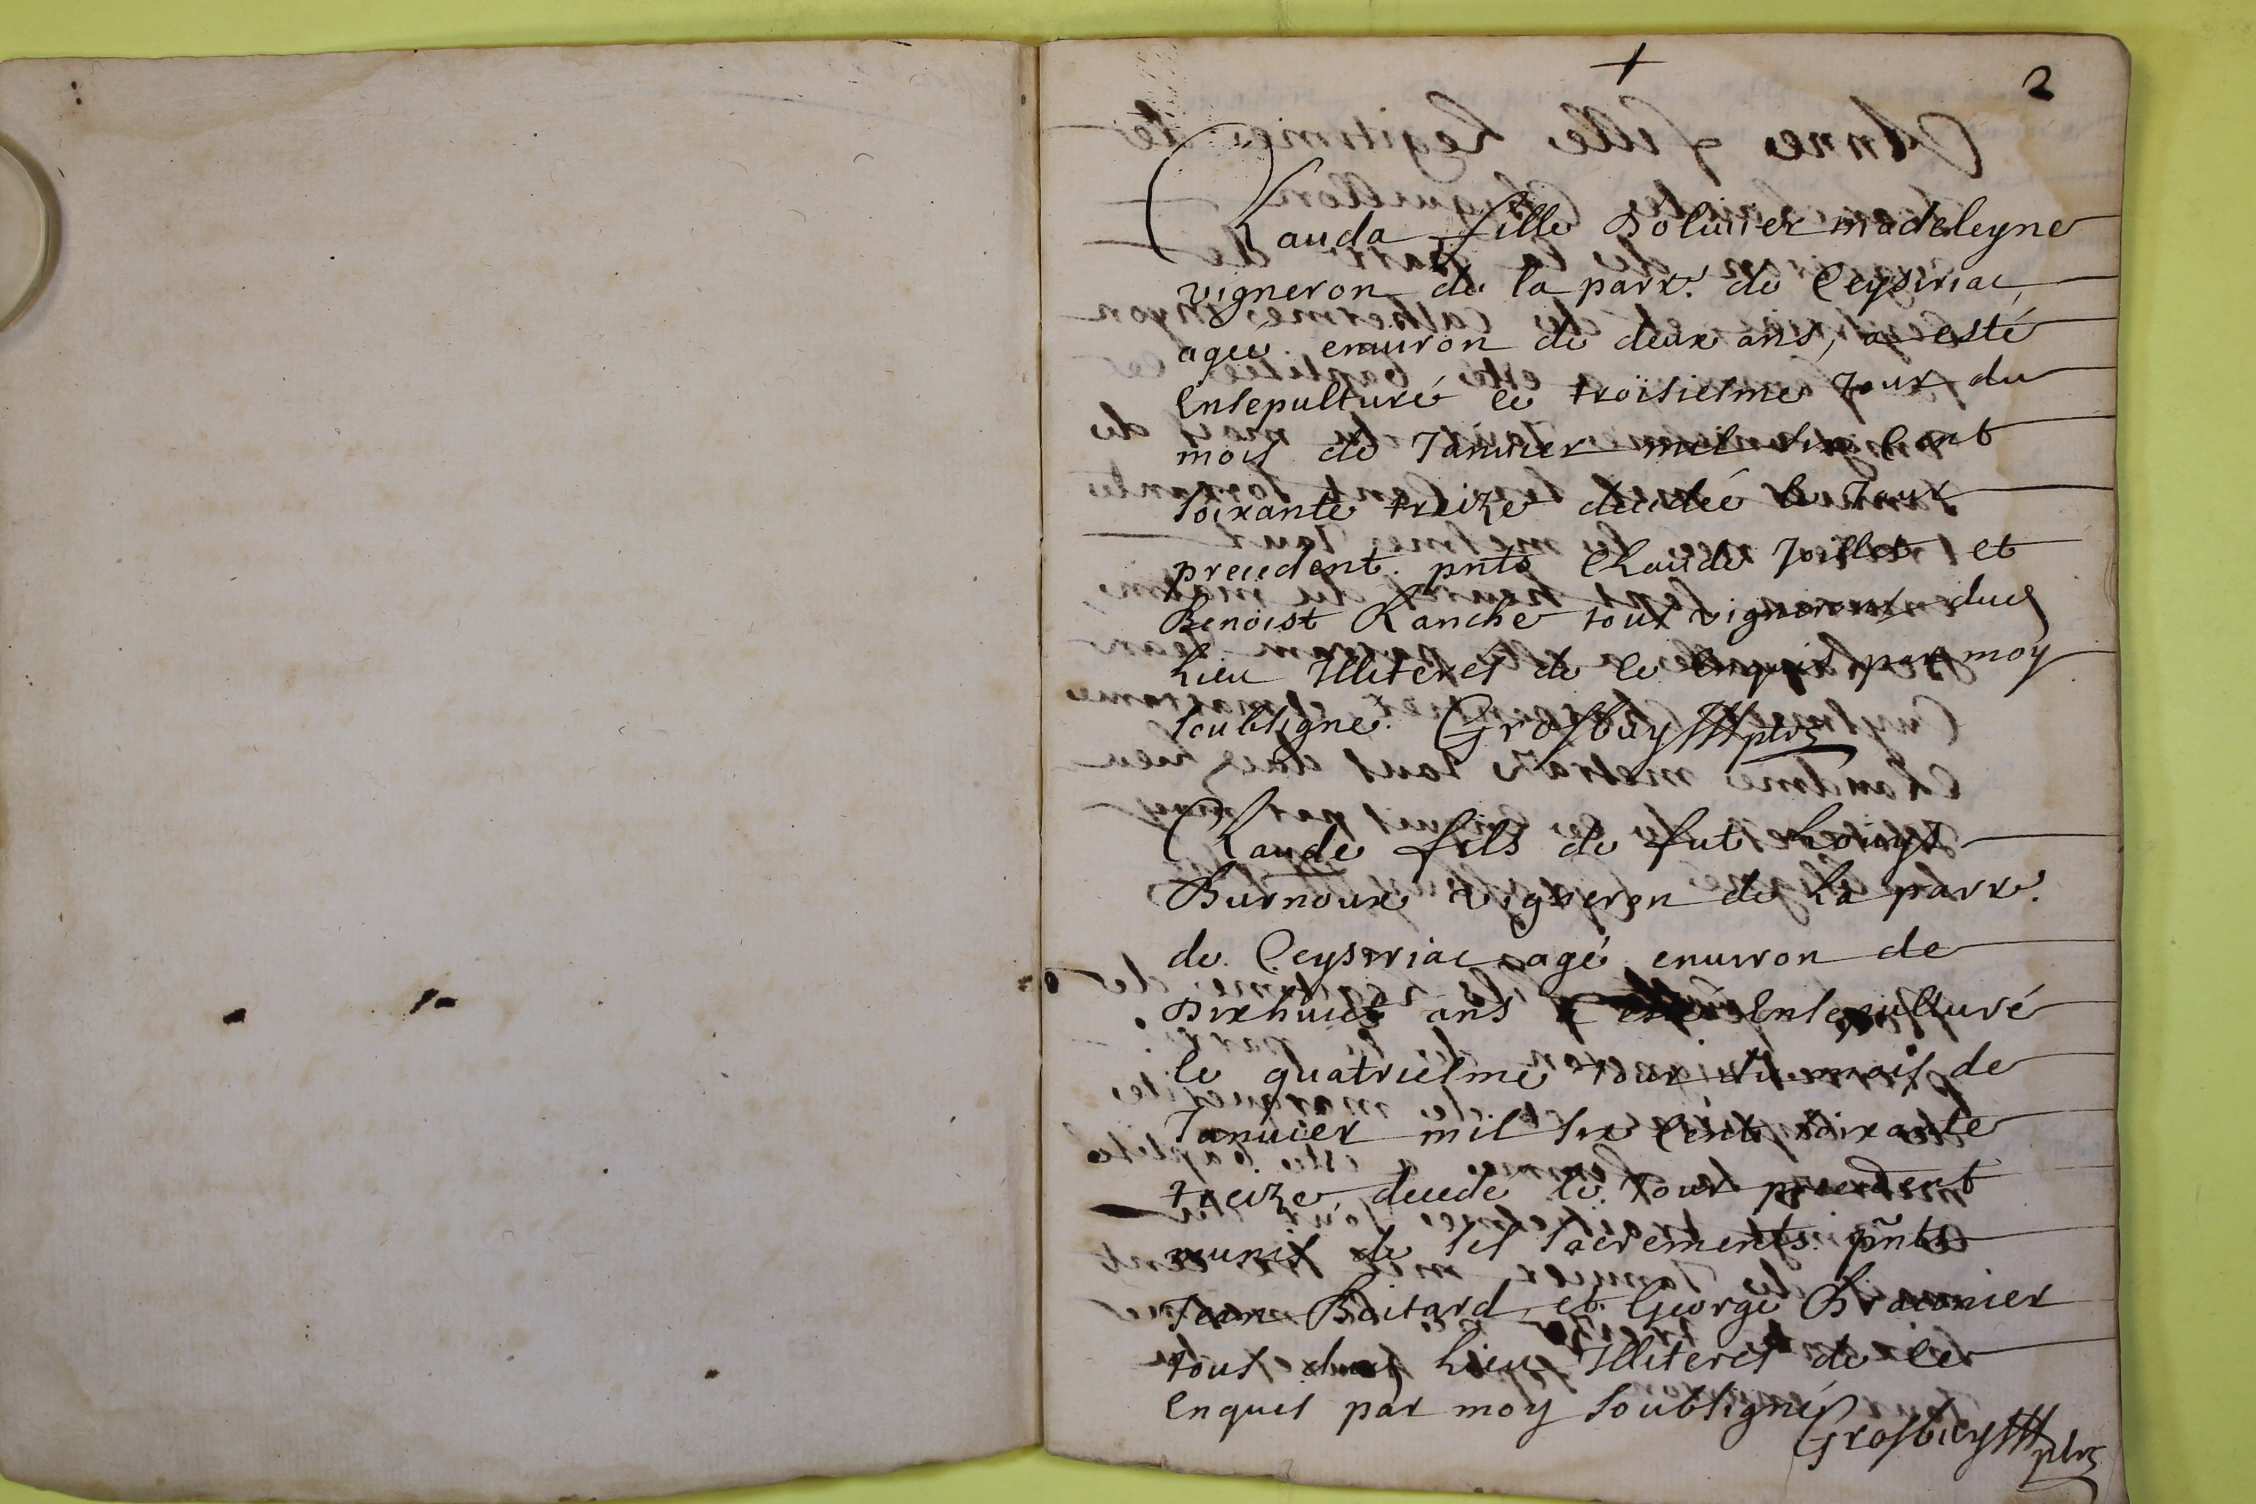 2
Clauda fille D'oliuier madeleyne
vigneron de la parr. de Ceyseriac,
agee enuiron de deux ans, a esté
Ensepulturé le troisiesme Jour du
mois de Januier mil six Cent
soixante treize decedée le Jour
precedent. pnts Claude Joillet et
Benoist Ranche tous vignerons dud
Lieu Illiteres de ce enquis par moy
soubsigne. Grosbuy ptre
Claude fils de fut Louys
Burnoux vigneron de La parr.
de Ceyseriac agé enuiron de
Dixhuict ans a esté Ensepulturé
le quatriesme Jour du mois de
Januier mil six Cent soixante
treize, decede le Jour precedent
munis de ses sacrements. pnts
Jean Boitard et George Braconier
tous dud Lieu Illiteres de ce
Enquis par moy soubsigné
Grosbuy ptre